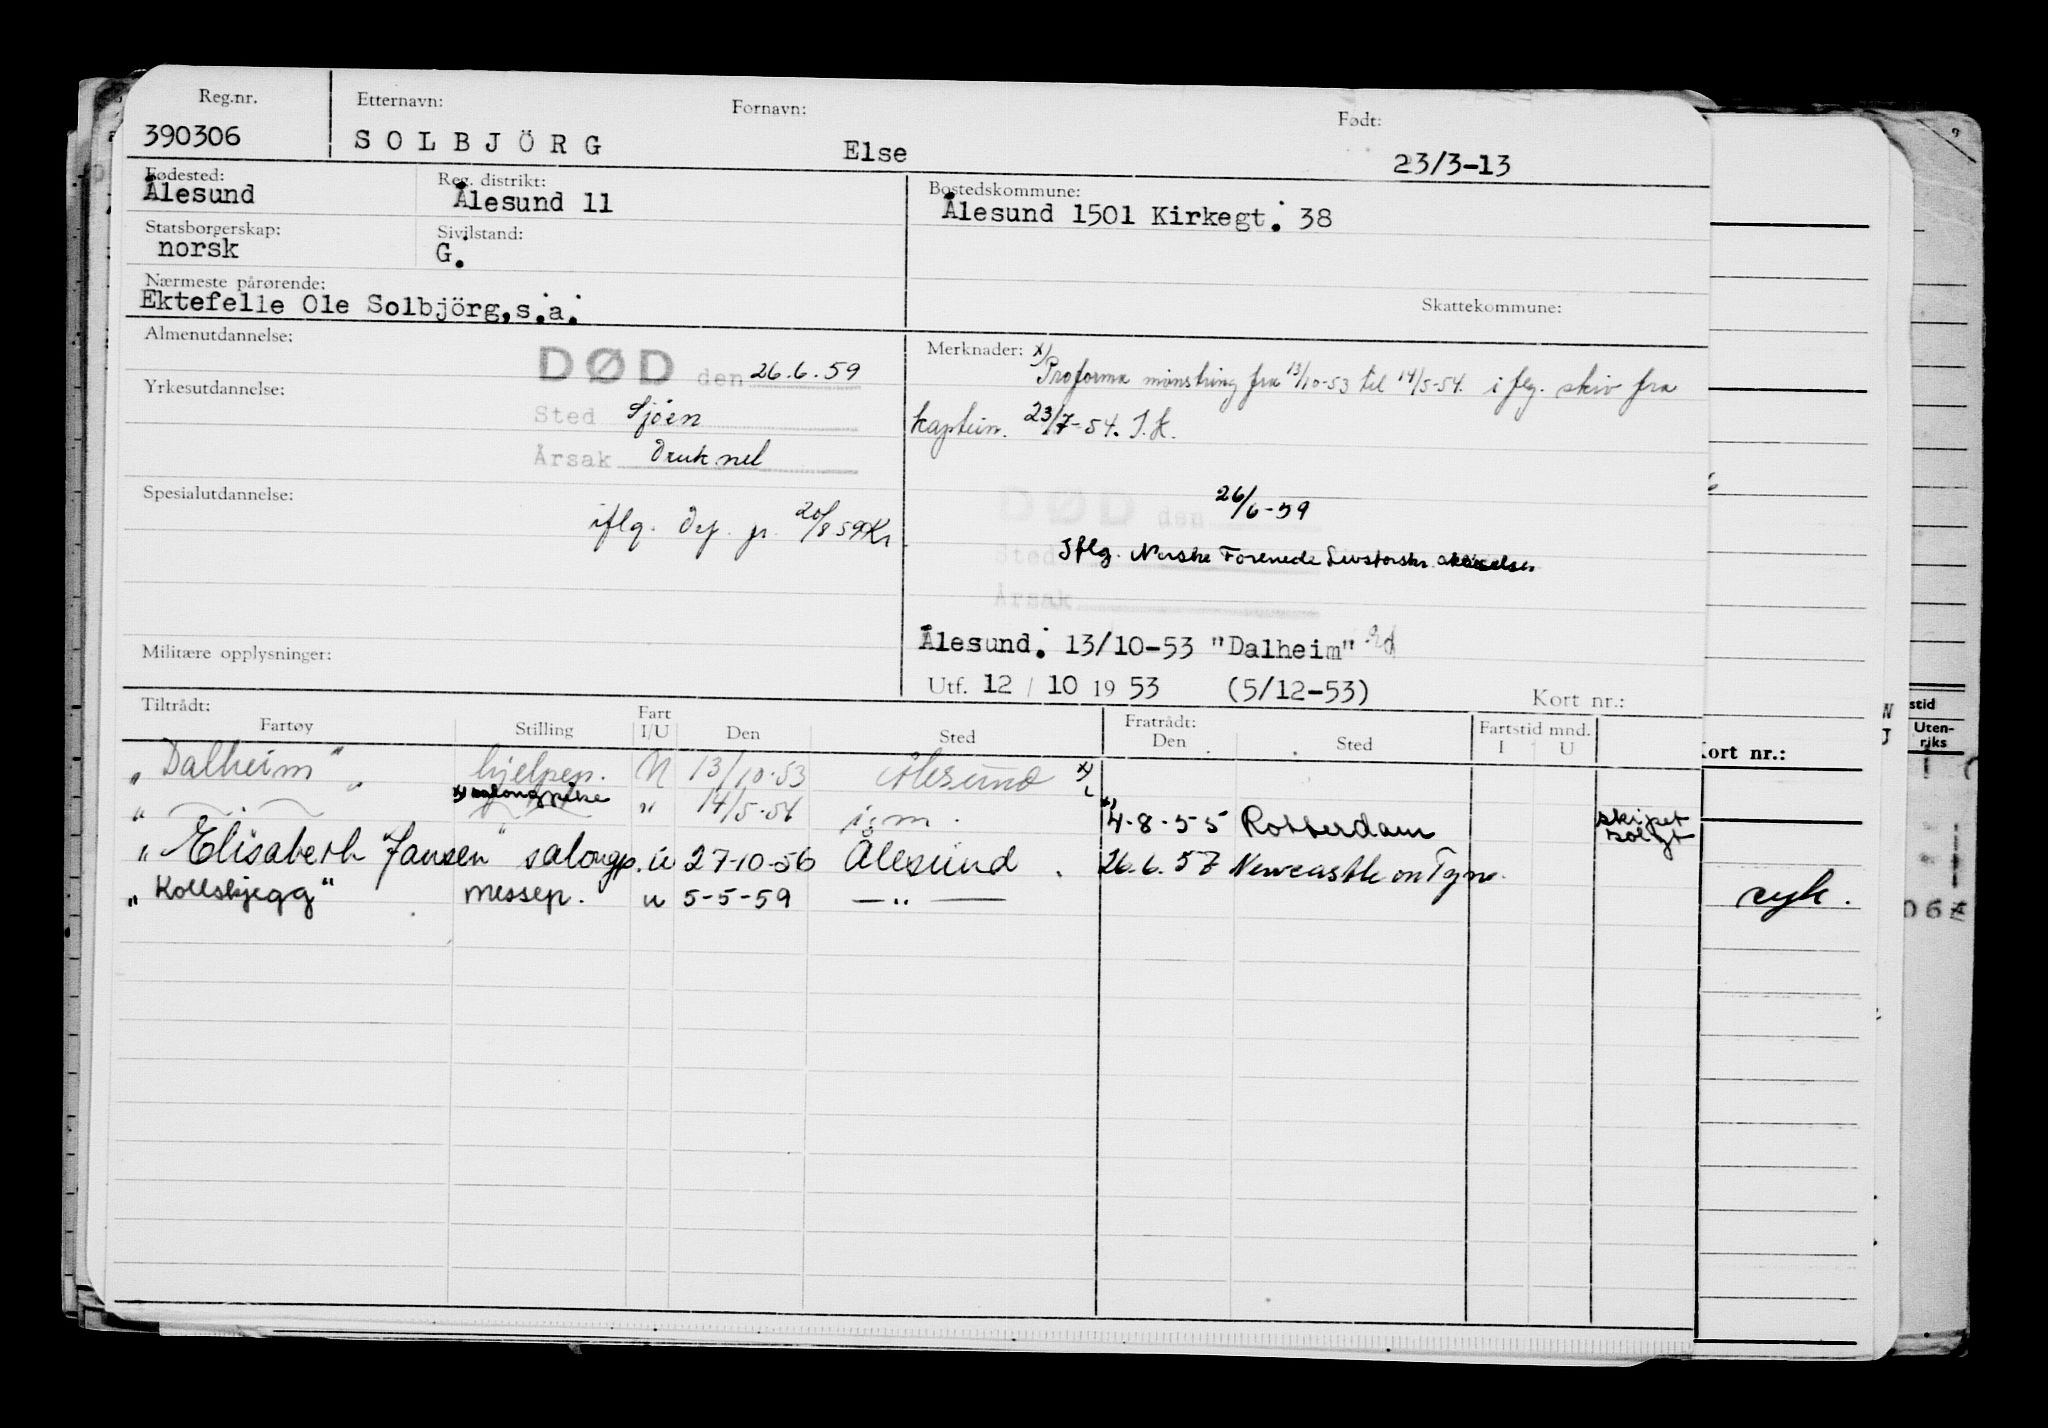 Reg.nr. Etternavn: Fornavn: Født:
390306 SOLBJÖRG Else 23/3-13
Fødested: Reg. distrikt: Bostedskommune:
Ålesund Ålesund 11 Ålesund 1501 Kirkegt. 38
Statsborgerskap: Sivilstand:
norsk G.
Nærmeste pårørende:
Ektefelle Ole Solbjörg, s.a. Skattekommune:
Almenutdannelse: Merknader: x)
DØD den 26.6.59 Proforma mønstring fra 13/10-53 til 14/5-54. i flg. skiv fra
Yrkesutdannelse:
Sted Sjöen kaptein. 23/7-54. I.K.
Årsak Druknet
Spesialutdannelse: DØD den 26/6-59
iflg. Dep. pr. 20/8 59 Kr.
Sted Iflg. Norske Forenede Livsforskr.
Årsak
Militære opplysninger: Ålesund. 13/10-53 "Dalheim"
Utf. 12 / 10 19 53 (5/12-53) Kort nr.:
Tiltrådt: Fratrådt: Fartstid mnd.
Fartøy Stilling Fart I/U Den Sted Den Sted I U
"Dalheim" hjelpep. U 13/10-53 Ålesund x)
" x) salongpike " 14/5-54 i.m. 4-8-55 Rotterdam skipet solgt
"Elisabeth Jansen" salongp. u 27-10-56 Ålesund 26.6.57 Newcastle on Tyne.
"Kollsbjegg" messep. u 5-5-59 — " —
Kort nr.:
syk.
stid
Uten-
riks